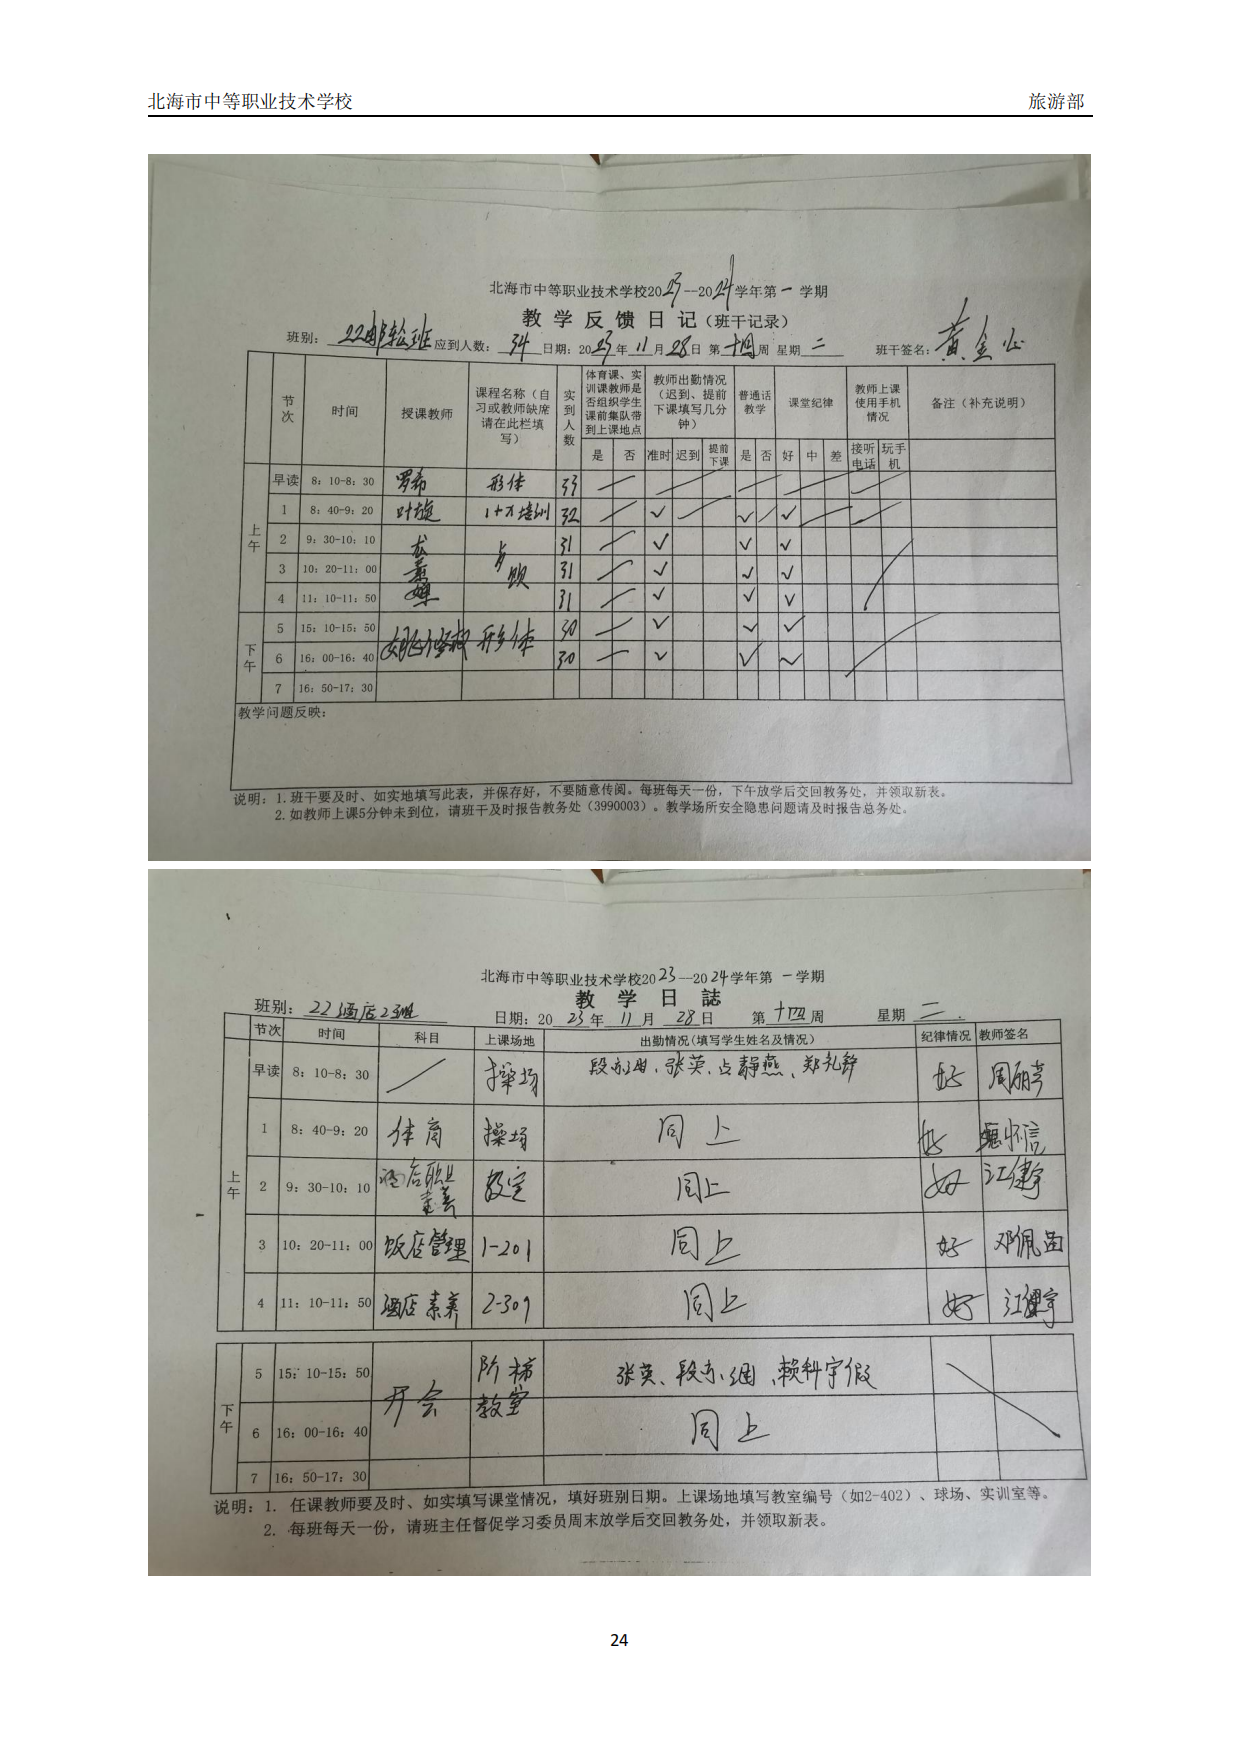 北海市中等职业技术学校 旅游部
北海市中等职业技术学校2023--2024学年第一学期
教学反馈日记(班干记录)
班别: 22邮轮班 应到人数: 34 日期: 2023年11月28日 第十四周 星期二 班干签名: 黄金
节次 时间 授课教师 课程名称(自习或教师缺席请在此栏填写) 实到人数 体育课、实训课教师是否组织学生课前集队带到上课地点 教师出勤情况(迟到、提前下课填写几分钟) 普通话教学 课堂纪律 教师上课使用手机情况 备注(补充说明)
是 否 准时 迟到 提前下课 是 否 好 中 差 接听电话 玩手机
上午
早读 8:10-8:30 罗希 形体 33
1 8:40-9:20 叶旋 1+X培训 32 ✓ ✓ ✓
2 9:30-10:10 31 ✓ ✓ ✓
3 10:20-11:00 31 ✓ ✓ ✓
4 11:10-11:50 31 ✓ ✓ ✓
下午
5 15:10-15:50 形体 30 ✓ ✓ ✓
6 16:00-16:40 30 ✓ ✓ ✓
7 16:50-17:30
教学问题反映:
说明:1.班干要及时、如实地填写此表,并保存好,不要随意传阅。每班每天一份,下午放学后交回教务处,并领取新表。
2.如教师上课5分钟未到位,请班干及时报告教务处(3990003)。教学场所安全隐患问题请及时报告总务处。
北海市中等职业技术学校2023--2024学年第一学期
教学日誌
班别: 22酒店2班 日期: 2023年11月28日 第十四周 星期二
节次 时间 科目 上课场地 出勤情况(填写学生姓名及情况) 纪律情况 教师签名
上午
早读 8:10-8:30 操场 张英、静燕、 好 周丽
1 8:40-9:20 体育 操场 同上 好 怀信
2 9:30-10:10 酒店职业素养 教室 同上 好 江健宇
3 10:20-11:00 饭店管理 1-201 同上 好 邓佩
4 11:10-11:50 酒店素养 2-309 同上 好 江健宇
下午
5 15:10-15:50 开会 阶梯教室 张英、赖科宇假
6 16:00-16:40 同上
7 16:50-17:30
说明:1. 任课教师要及时、如实填写课堂情况,填好班别日期。上课场地填写教室编号(如2-402)、球场、实训室等。
2. 每班每天一份,请班主任督促学习委员周末放学后交回教务处,并领取新表。
24